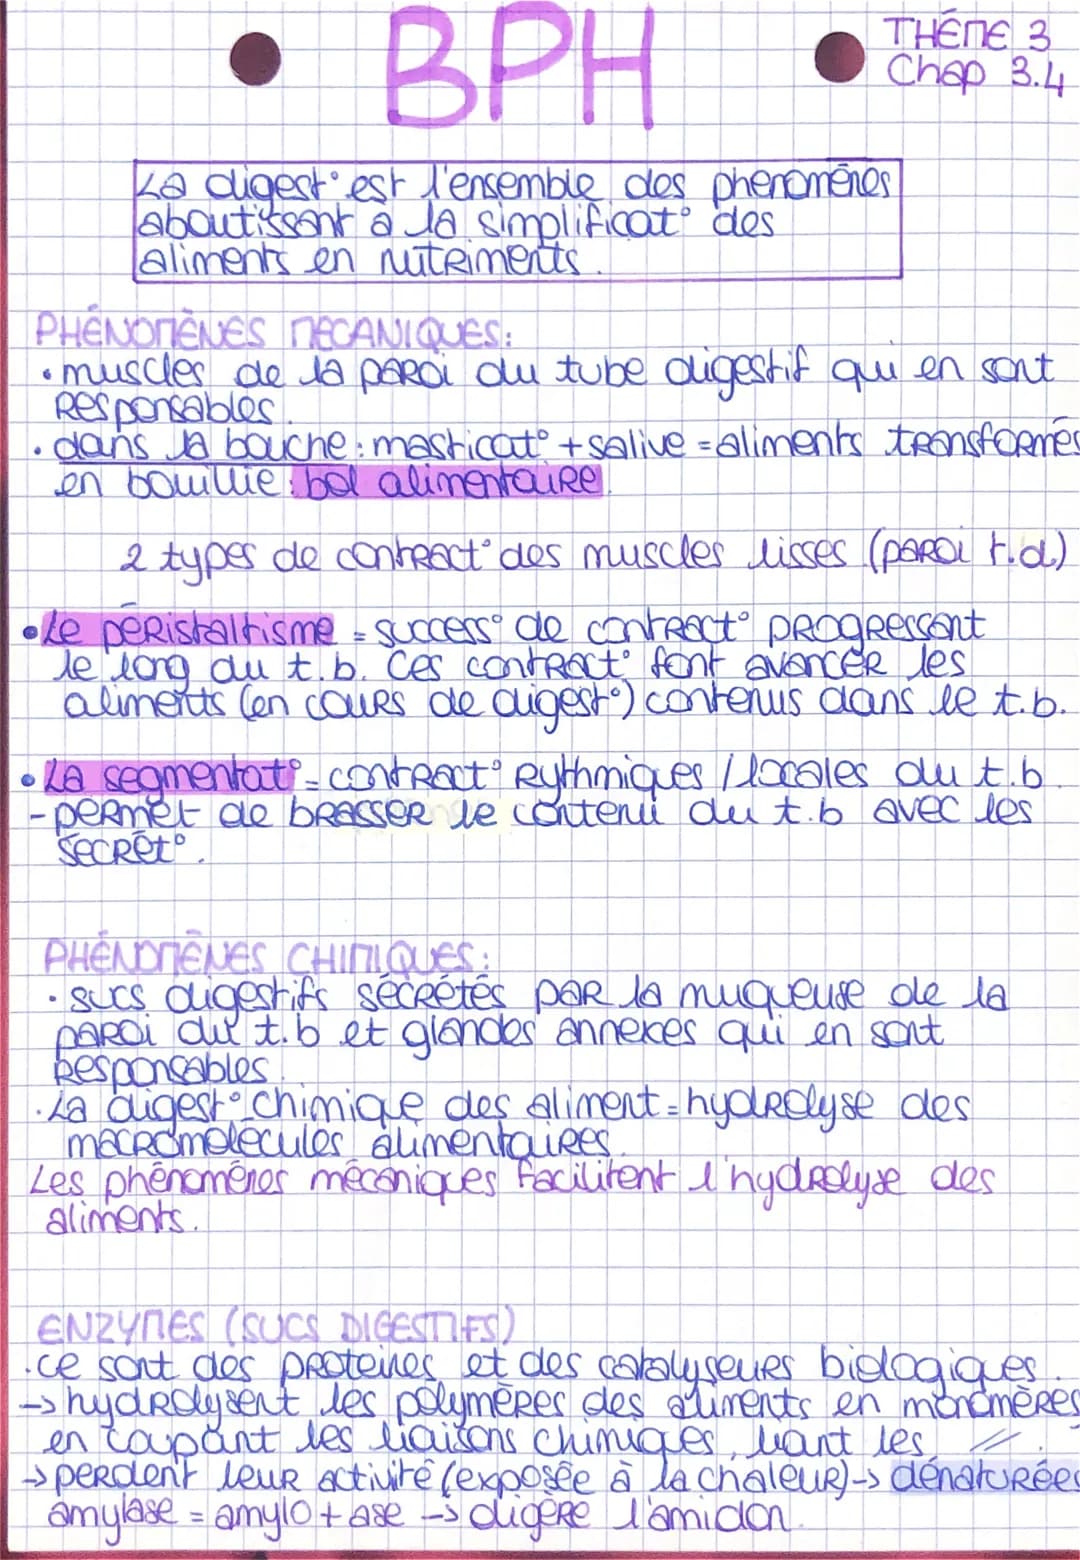 BPH
THÉME 3
Chap 3.4
La digest° est l'ensemble des phénomènes
aboutissant a la simplificat° des
aliments en nutriments.
PHÉNOMÈNES MECANIQUES:
• muscles de la paroi du tube digestif qui en sont
responsables.
• dans la bouche: masticat° + salive = aliments transformés
en bouillie: bol alimentaire.
2 types de contract° des muscles lisses (paroi t.d.)
• Le péristaltisme = success° de contract° progressant
le long du t.b. Ces contract° font avancer les
aliments (en cours de digest°) contenus dans le t.b.
• La segmentat° = contract° rythmiques / locales du t.b.
- permet de brasser le contenu du t.b avec les
sécrét°.
PHÉNOMÈNES CHIMIQUES:
• sucs digestifs sécrétés par la muqueuse de la
paroi du t.b et glandes annexes qui en sont
responsables.
• La digest° chimique des aliment = hydrolyse des
macromolécules alimentaires.
Les phénomènes mécaniques facilitent l'hydrolyse des
aliments.
ENZYMES (SUCS DIGESTIFS)
• ce sont des proteines et des catalyseurs biologiques.
→ hydrolysent les polymères des aliments en monomères
en coupant les liaisons chimiques, liant les //.
→ perdent leur activité (exposée à la chaleur) → dénaturées
amylase = amylo + ase → digère l'amidon.